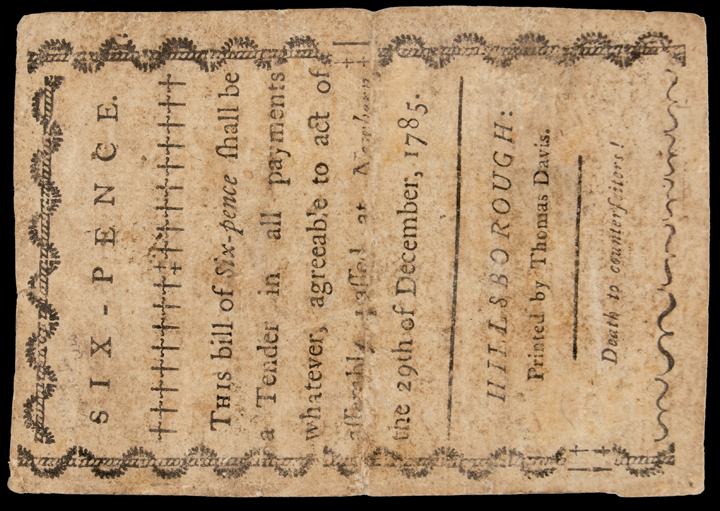 SIX-PENCE.
THIS bill of Six-pence ſhall be
a Tender in all payments
whatever, agreeable to act of
aſſembly, paſſed at Newbern
the 29th of December, 1785.
HILLSBOROUGH:
Printed by Thomas Davis.
Death to counterfeitors!